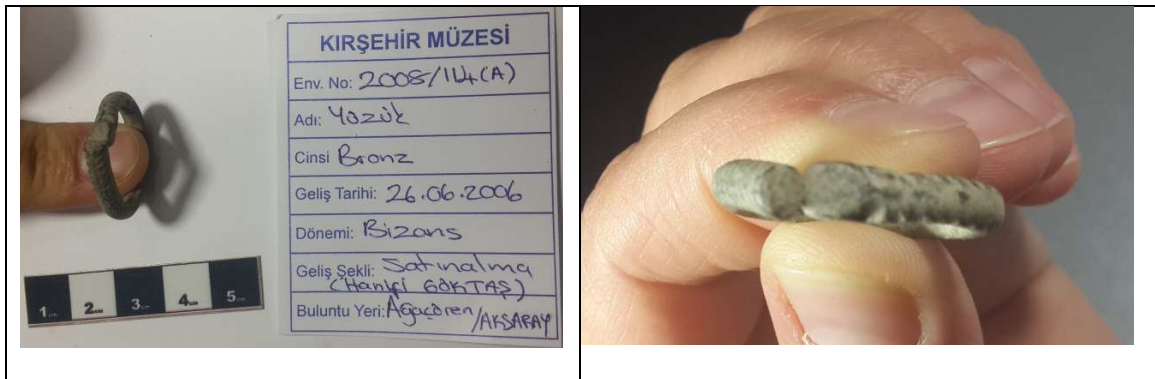 KIRŞEHİR MÜZESİ
Env. No: 2008/114(A)
Adı: Yüzük
Cinsi Bronz
Geliş Tarihi: 26.06.2006
Dönemi: Bizans
Geliş Şekli: Satınalma
(Hanifi GÖKTAŞ)
Buluntu Yeri: Ağaçören /AKSARAY
1cm 2cm 3cm 4cm 5cm